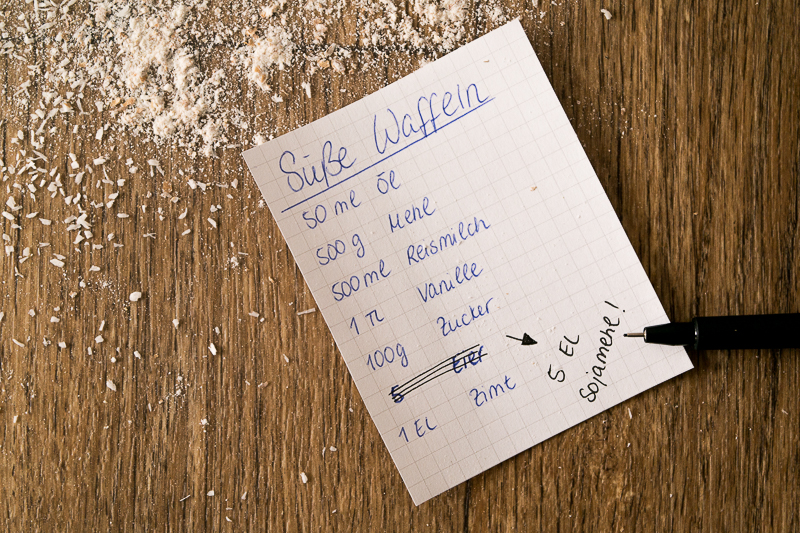 Süße Waffeln
50 ml Öl
500 g Mehl
500 ml Reismilch
1 TL Vanille
100g Zucker
5 Eier
5 EL
Sojamehl!
1 EL Zimt